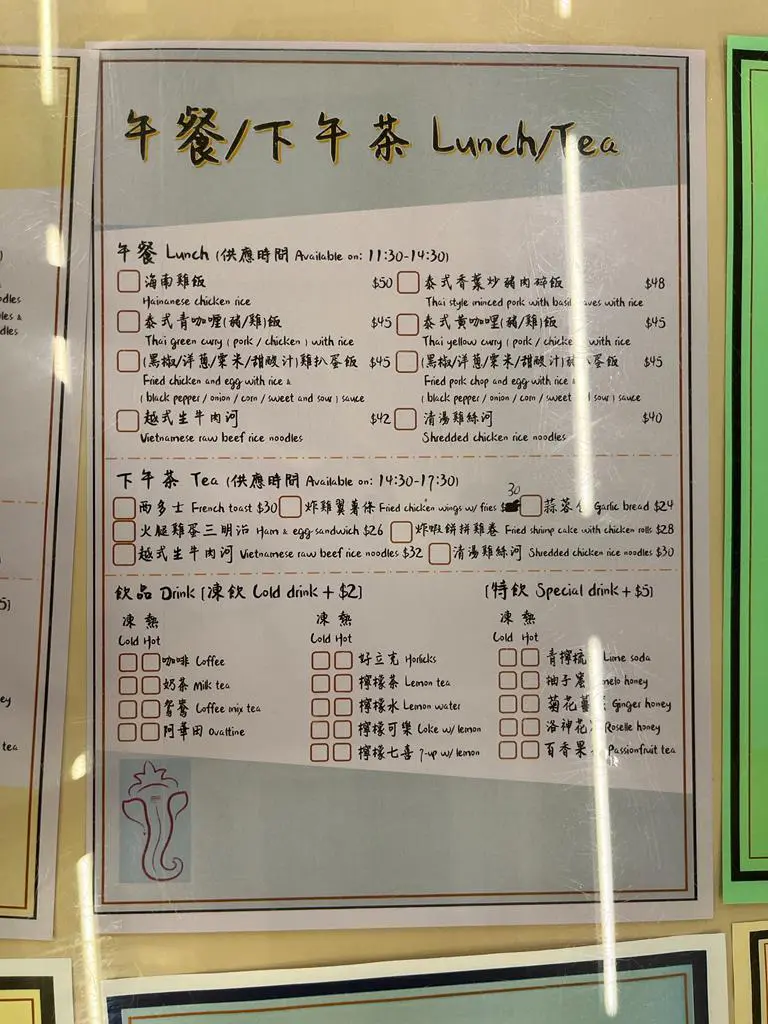 午餐/下午茶 Lunch/Tea
午餐 Lunch (供應時間 Available on: 11:30-14:30)
海南雞飯 $50 泰式香葉炒豬肉碎飯 $48
Hainanese chicken rice Thai style minced pork with with rice
泰式青咖喱(豬/雞)飯 $45 泰式黃咖喱(豬/雞)飯 $45
Thai green curry (pork / chicken) with rice Thai yellow curry (pork / chicken) with rice
(黑椒/洋蔥/粟米/甜酸汁)雞扒蛋飯 $45 (黑椒/洋蔥/粟米/甜酸汁) 蛋飯 $45
Fried chicken and egg with rice & Fried pork chop and egg with rice &
(black pepper / onion / corn / sweet and sour) sauce (black pepper / onion / corn / sweet sour) sauce
越式生牛肉河 $42 清湯雞絲河 $40
Vietnamese raw beef rice noodles Shredded chicken rice noodles
下午茶 Tea (供應時間 Available on: 14:30-17:30)
西多士 French toast $30 炸雞翼薯條 Fried chicken wings w/ fries $ 30 蒜蓉 Garlic bread $24
火腿雞蛋三明治 Ham & egg sandwich $26 炸蝦餅拼雞卷 Fried shrimp cake with chicken rolls $28
越式生牛肉河 Vietnamese raw beef rice noodles $32 清湯雞絲河 Shredded chicken rice noodles $30
飲品 Drink [凍飲 Cold drink + $2] [特飲 Special drink + $5]
凍 熱 凍 熱 凍 熱
Cold Hot Cold Hot Cold Hot
咖啡 Coffee 好立克 Horlicks 青檸梳 Lime soda
奶茶 Milk tea 檸檬茶 Lemon tea 柚子蜜 melo honey
鴛鴦 Coffee mix tea 檸檬水 Lemon water 菊花薑 Ginger honey
阿華田 Ovaltine 檸檬可樂 Coke w/ lemon 洛神花 Roselle honey
檸檬七喜 7-up w/ lemon 百香果 Passionfruit tea
odles
les &
odles
5]
ey
tea